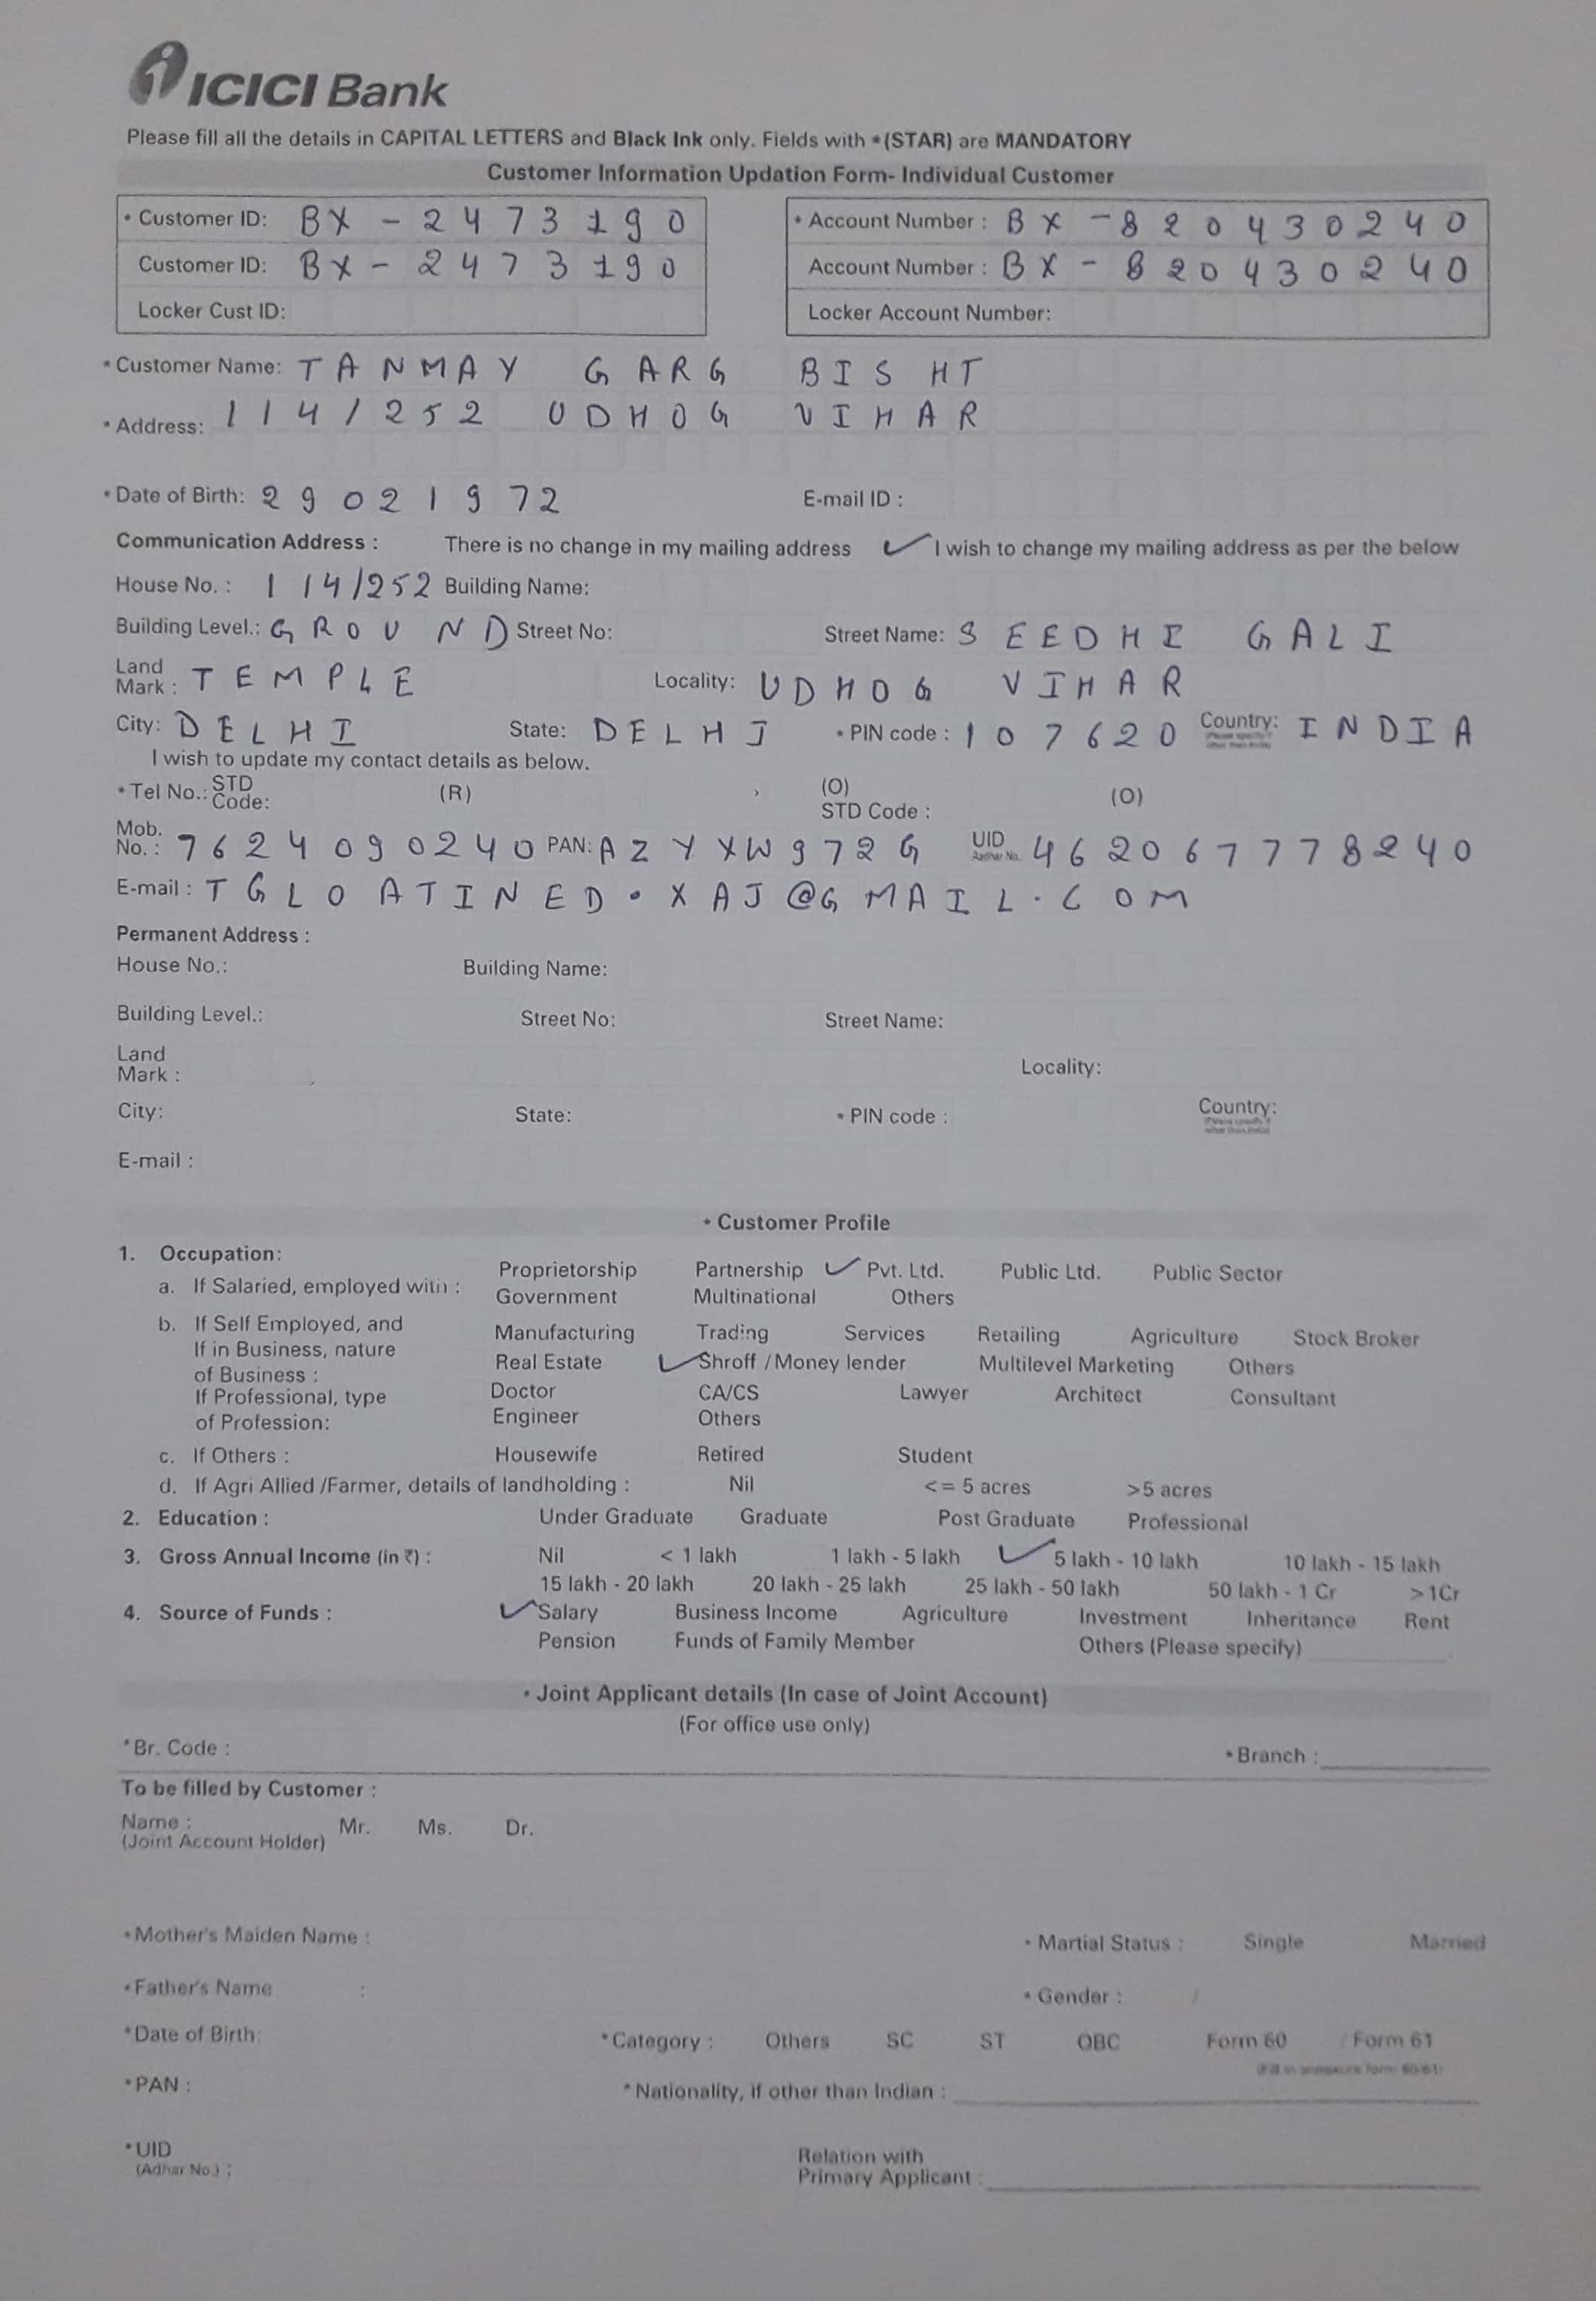 ICICI Bank
Please fill all the details in CAPITAL LETTERS and Black Ink only. Fields with *(STAR) are MANDATORY
Customer Information Updation Form- Individual Customer
* Customer ID: BX - 2473190 * Account Number : BX - 820430240
Customer ID: BX - 2473190 Account Number : BX - 820430240
Locker Cust ID: Locker Account Number:
* Customer Name: TANMAY GARG BISHT
* Address: 114/252 UDHOG VIHAR
* Date of Birth: 29021972 E-mail ID :
Communication Address : There is no change in my mailing address ✓ I wish to change my mailing address as per the below
House No. : 114/252 Building Name:
Building Level.: GROUND Street No: Street Name: SEEDHI GALI
Land Mark : TEMPLE Locality: UDHOG VIHAR
City: DELHI State: DELHI * PIN code : 107620 Country: INDIA
I wish to update my contact details as below.
* Tel No.: STD Code: (R) (O) STD Code : (O)
Mob. No. : 7624090240 PAN: AZYXW972G UID Aadhar No. 462067778240
E-mail : TGLOATINED.XAJ@GMAIL.COM
Permanent Address :
House No.: Building Name:
Building Level.: Street No: Street Name:
Land Mark : Locality:
City: State: * PIN code : Country:
E-mail :
* Customer Profile
1. Occupation:
a. If Salaried, employed with : Proprietorship Partnership ✓ Pvt. Ltd. Public Ltd. Public Sector
Government Multinational Others
b. If Self Employed, and If in Business, nature of Business : Manufacturing Trading Services Retailing Agriculture Stock Broker
Real Estate ✓ Shroff / Money lender Multilevel Marketing Others
If Professional, type of Profession: Doctor CA/CS Lawyer Architect Consultant
Engineer Others
c. If Others : Housewife Retired Student
d. If Agri Allied /Farmer, details of landholding : Nil <= 5 acres >5 acres
2. Education : Under Graduate Graduate Post Graduate Professional
3. Gross Annual Income (in ₹) : Nil < 1 lakh 1 lakh - 5 lakh ✓ 5 lakh - 10 lakh 10 lakh - 15 lakh
15 lakh - 20 lakh 20 lakh - 25 lakh 25 lakh - 50 lakh 50 lakh - 1 Cr >1Cr
4. Source of Funds : ✓ Salary Business Income Agriculture Investment Inheritance Rent
Pension Funds of Family Member Others (Please specify)
* Joint Applicant details (In case of Joint Account)
(For office use only)
*Br. Code : * Branch :
To be filled by Customer :
Name : Mr. Ms. Dr.
(Joint Account Holder)
* Mother's Maiden Name : * Martial Status : Single Married
* Father's Name : * Gender :
*Date of Birth: *Category : Others SC ST OBC Form 60 / Form 61
(Fill in annexure form 60/61)
*PAN : * Nationality, if other than Indian :
*UID Relation with
(Adhar No.) : Primary Applicant :